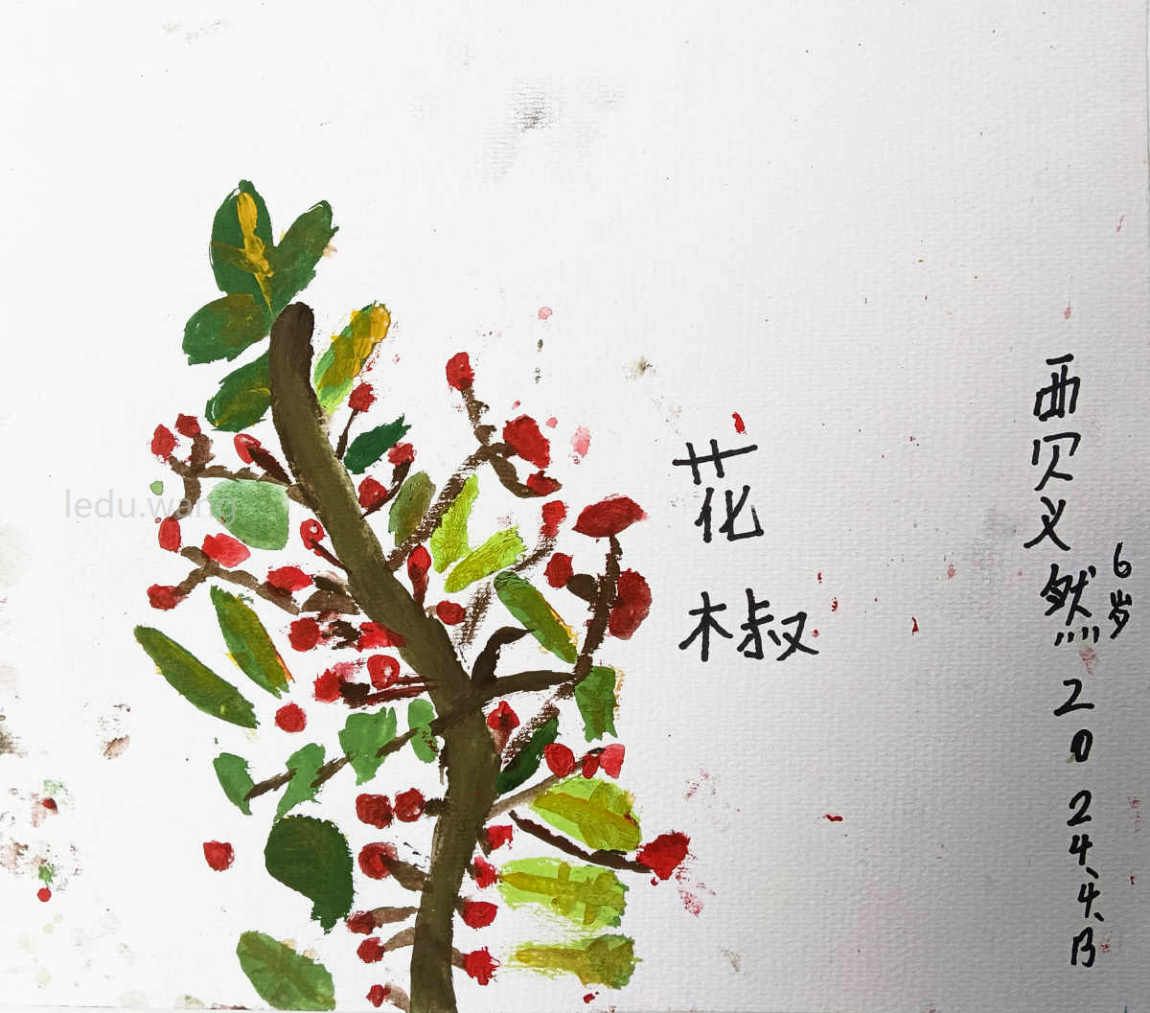 花椒
西贝义然
6岁
2024.4.日
ledu.wang